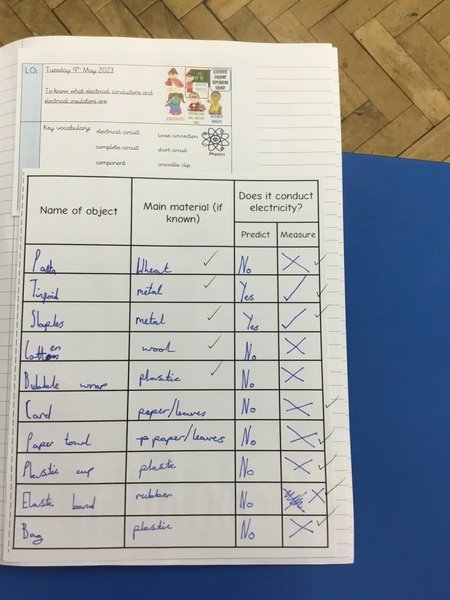 LO:
Tuesday 9th May 2023
To know what electrical conductors and
electrical insulators are
Key vocabulary:
electrical circuit
loose connection
complete circuit
short circuit
component
crocodile clip
Physics
Name of object
Main material (if known)
Does it conduct electricity?
Predict
Measure
Pasta
Wheat
No
Tinfoid
metal
Yes
Staples
metal
Yes
wool
No
Bubbable wrap
plastic
No
Card
paper/leaves
No
Paper towl
paper/leaves
No
Plastic cup
plastic
No
Elastic band
rubber
No
Bag
plastic
No